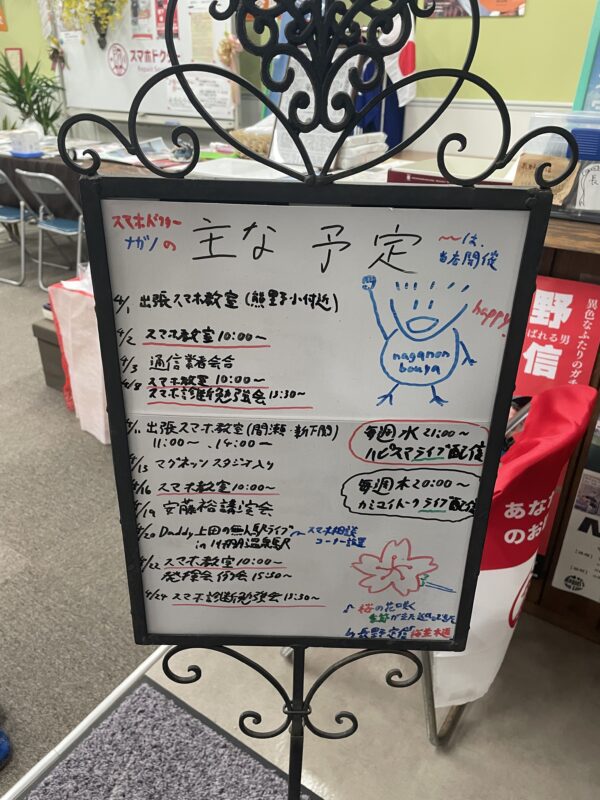 スマホドクター
スマホドクター
ナガノの
主な予定
〜は、
当店開催
4/1 出張スマホ教室(熊野小付近)
4/2 スマホ教室 10:00〜
4/3 通信業者会合
4/8 スマホ教室 10:00〜
スマホ診断勉強会 13:30〜
happy!
naganon
bouya
出張スマホ教室(関瀬・新下関)
11:00〜、14:00〜
4/15 マグネッツ スタジオ入り
4/16 スマホ教室 10:00〜
4/19 安藤裕講演会
4/20 Daddy上田の無人駅ライブ
スマホ相談
コーナー設置
4/22 スマホ教室 10:00〜
15:30〜
4/24 スマホ診断勉強会 13:30〜
毎週水 21:00〜
ハピスマライブ配信
毎週木 20:00〜
ライブ配信
♪桜の花咲く
季節がまた
野
信
異色なふたりのガチ
ばれる男
あなた
のお